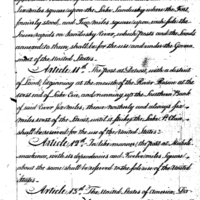 Six miles square upon the Lake Sandusky where the Fort
formerly stood, and Two miles square upon each side the
Lower rapids on Sandusky River, which posts and the lands
annexed to them, shall be for the use and under the Govern-
ment of the United States.
Article 11th. The post at Detroit, with a district
of land beginning at the mouth of the River Rosine at the
west end of Lake Erie, and running up the Southern Bank of
said River six miles, thence northerly and always six
miles west of the Strait, until it strikes the Lake St. Clair,
shall be reserved for the use of the United States.
Article 12th. In like manner the post at Michili-
mackinac, with its dependencies and Twelve miles square
about the same shall be reserved to the sole use of the United
States.
Article 13th. The United States of America, For